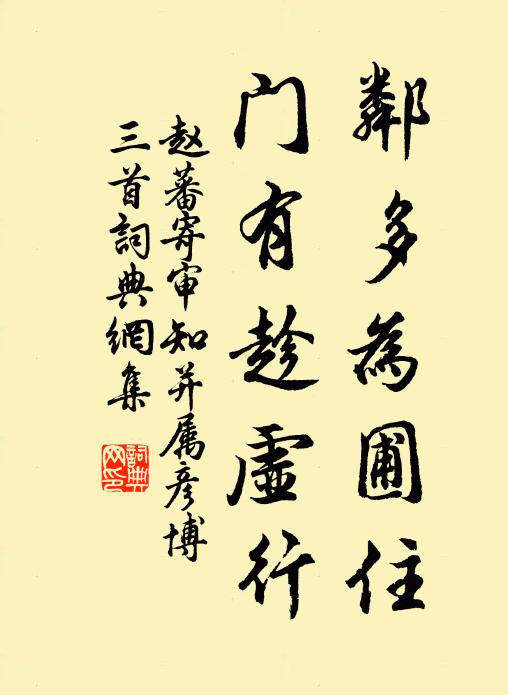 鄰多為圃住
门有趁虛行
赵蕃寄审知并属彦博
三首詞典網集
詞典網印